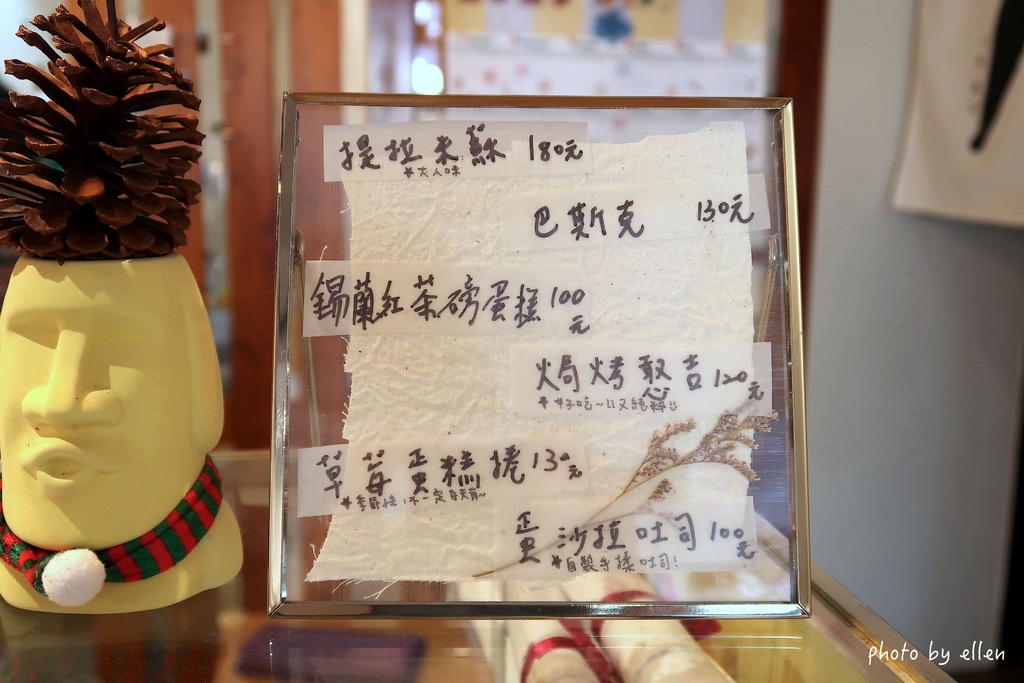 提拉米蘇 180元
*大人味
巴斯克 130元
錫蘭紅茶磅蛋糕 100元
焗烤憨吉 120元
*好吃~!!又絕粹!!
草莓蛋糕捲 130元
*季節性,不一定每天有~
蛋沙拉吐司 100元
*自製手揉吐司!
photo by ellen